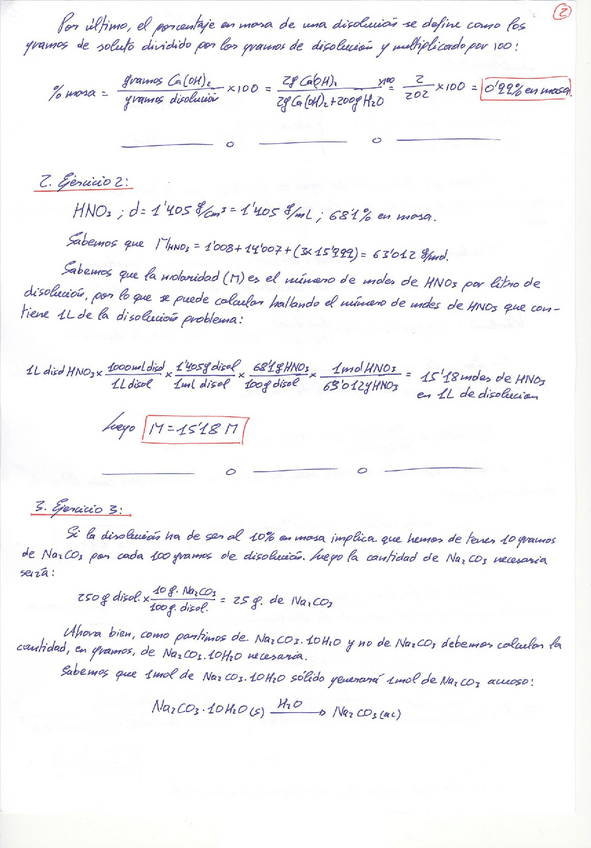 2
Por último, el porcentaje en masa de una disolución se define como los
gramos de soluto dividido por los gramos de disolución y multiplicado por 100:
% masa = gramos Ca(OH)₂ / gramos disolución ×100 = 2g Ca(OH)₂ / 2g Ca(OH)₂ + 200g H₂O ×100 = 2 / 202 ×100 = 0'99% en masa
2. Ejercicio 2:
HNO₃ ; d = 1'405 g/cm³ = 1'405 g/mL ; 68'1% en masa.
Sabemos que M HNO₃ = 1'008 + 14'007 + (3×15'999) = 63'012 g/mol.
Sabemos que la molaridad (M) es el número de moles de HNO₃ por litro de
disolución, por lo que se puede calcular hallando el número de moles de HNO₃ que con-
tiene 1L de la disolución problema:
1L disol HNO₃ × 1000 ml disol / 1L disol × 1'405g disol / 1ml disol × 68'1g HNO₃ / 100g disol × 1mol HNO₃ / 63'012g HNO₃ = 15'18 moles de HNO₃
en 1L de disolucion
luego M = 15'18 M
3. Ejercicio 3:
Si la disolución ha de ser al 10% en masa implica que hemos de tener 10 gramos
de Na₂CO₃ por cada 100 gramos de disolución. Luego la cantidad de Na₂CO₃ necesaria
sería:
250 g disol. × 10 g. Na₂CO₃ / 100 g. disol. = 25 g. de Na₂CO₃
Ahora bien, como partimos de Na₂CO₃·10H₂O y no de Na₂CO₃ debemos calcular la
cantidad, en gramos, de Na₂CO₃·10H₂O necesaria.
Sabemos que 1mol de Na₂CO₃·10H₂O sólido generará 1mol de Na₂CO₃ acuoso:
Na₂CO₃·10H₂O (s) —H₂O→ Na₂CO₃ (ac)